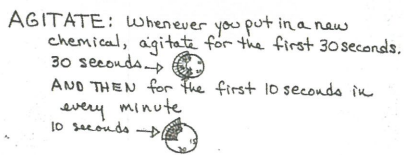 AGITATE: Whenever you put in a new
chemical, agitate for the first 30 seconds.
30 seconds →
AND THEN for the first 10 seconds in
every minute
10 seconds →